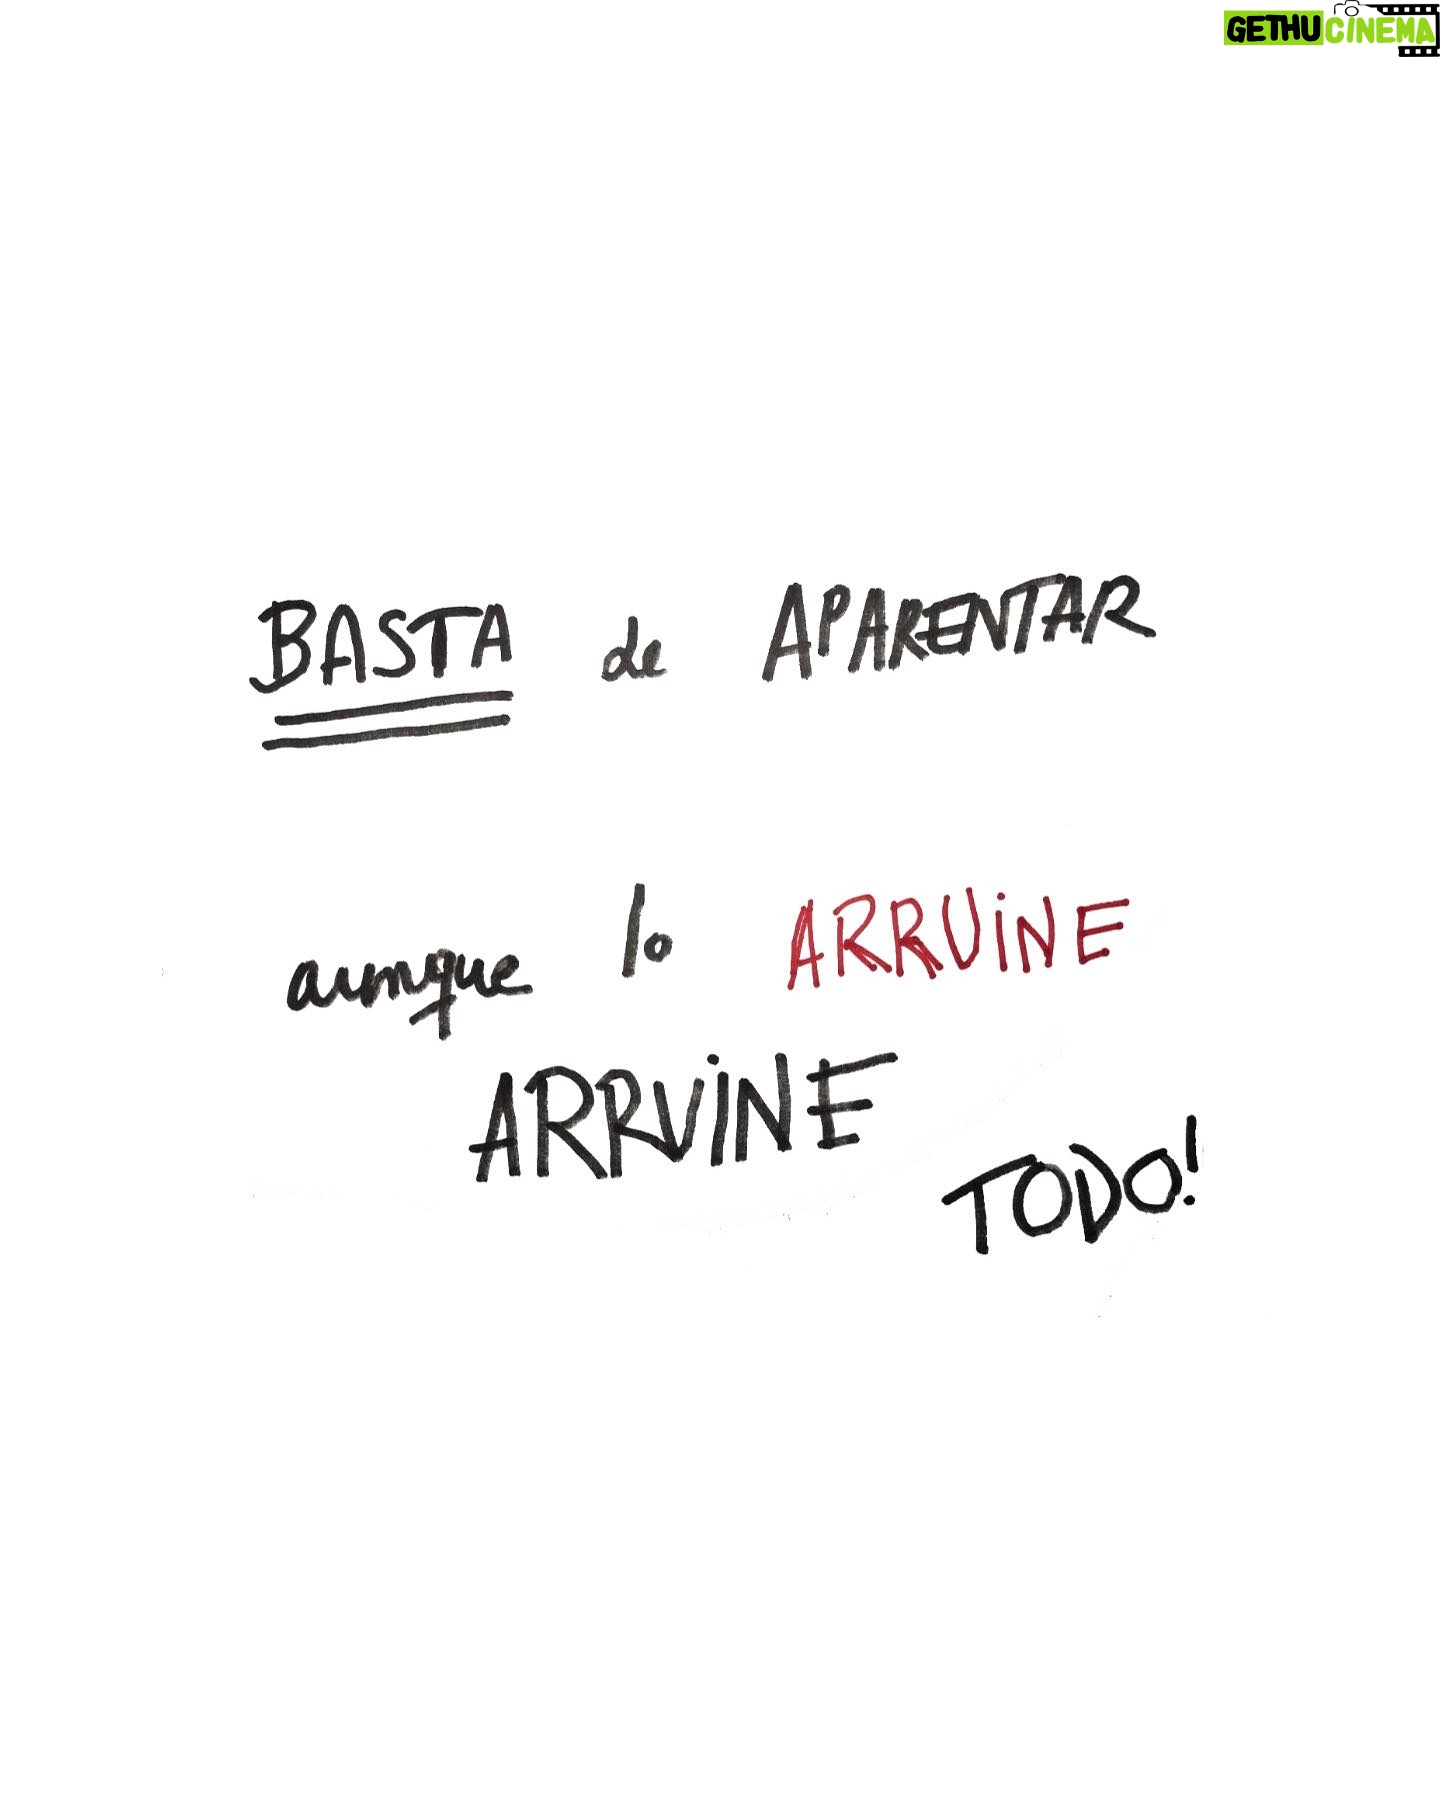 GETHUCINEMA
BASTA de APARENTAR
aunque lo ARRUiNE
ARRUiNE
TODO!